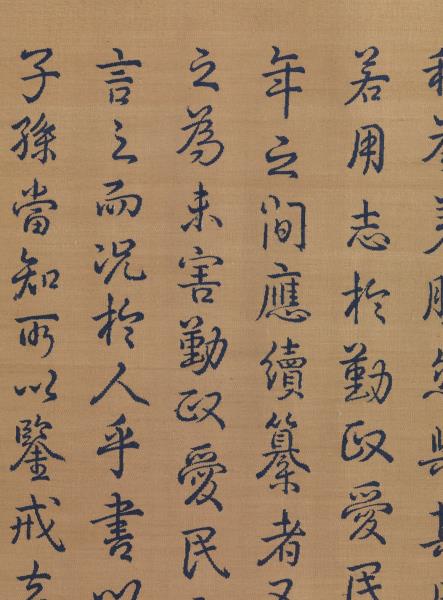 然與其
若用志於勤政愛民
年之間應續纂者
之為未害勤政愛民
言之而况於人乎書以
子孫當知所以鑒戒